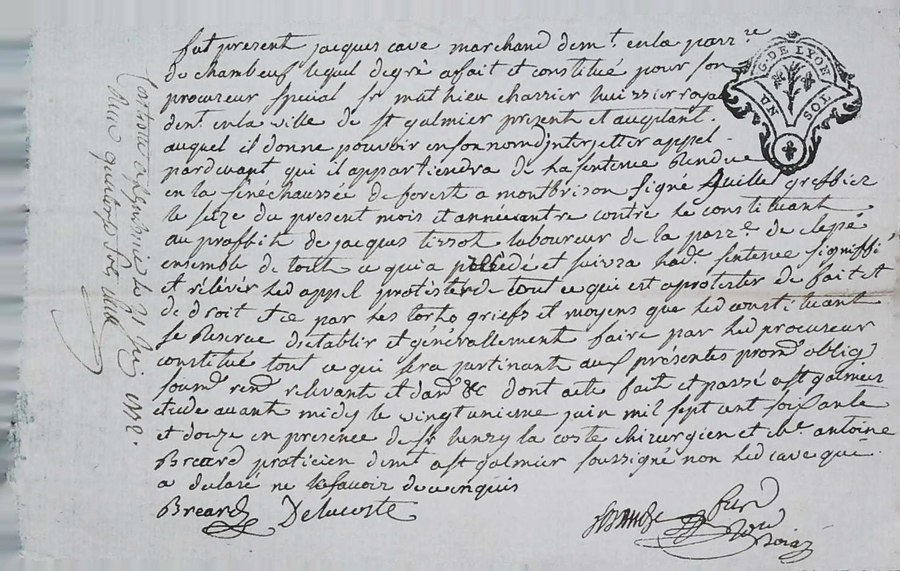 fut présent jacques cave marchand demt. en la parrce
de chambeuf lequel degré a fait et constitué pour son
procureur spécial sr mathieu charrier huissier royal
demt. en la ville de st galmier présent et acceptant.
auquel il donne pouvoir en son nom d'interjetter appel
pardevant qui il appartiendra de la sentence Rendue
en la sénéchaussée de forest a montbrison signé greffier
le seize du présent mois et an contre le constituant
au proffit de jacques tissot laboureur de la parre. de clepé
ensemble de tout ce qui a précédé et suivra lade. sentence signiffié
et relever led appel protister de tout ce qui est a protester de fait et
de droit et ce par les torts griefs et moyens que led constituant
se Reserve d'etablir et généralement faire par led procureur
constitué tout ce qui sera partinant aux présentes promt. oblig
soumt. rent. relevant et dant. &c dont acte fait et passé a st galmier
etude avant midy le vingt unieme juin mil sept cent soixante
et douze en presence de sr henry la coste chirurgien et me. antoine
Breard praticien demt a st galmier soussigné non led cave qui
a declaré ne le savoir de ce enquis
Breard Delacoste
G. DE LYON
NA SOL
Controllé a st galmier le 21 juin 1772.
Reçu quatorze sols